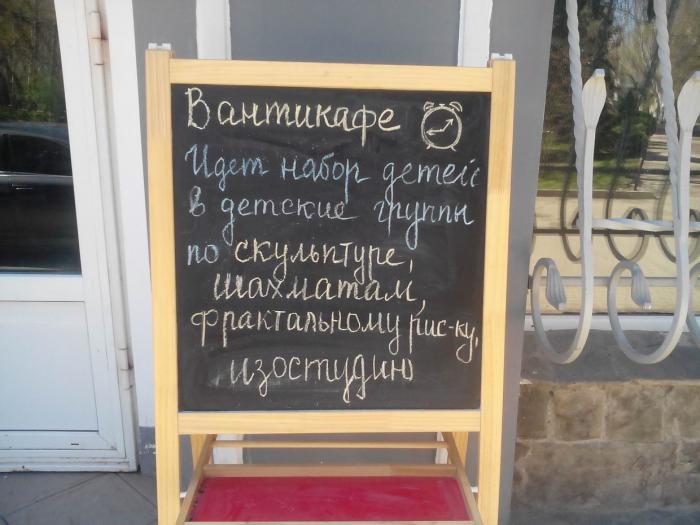 В антикафе
Идет набор детей
в детские группы
по скульптуре,
шахматам,
фрактальному рис-ку,
изостудию